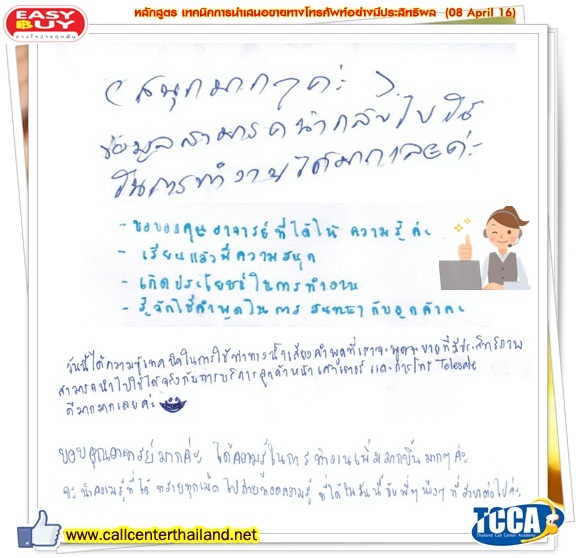 EASY BUY
หลักสูตร เทคนิคการนำเสนอขายทางโทรศัพท์อย่างมีประสิทธิผล (08 April 16)
(สนุกมากๆค่ะ)
ข้อมูลสามารถนำกลับไปใช้
ในการทำงานได้มากเลยค่ะ
- ขอบคุณอาจารย์ที่ได้ให้ ความรู้ค่ะ
- เรียนแล้วมีความสนุก
- เกิดประโยชน์ในการทำงาน
- รู้จักใช้คำพูดในการ สนทนากับลูกค้าค่ะ
วันนี้ได้ความรู้เทคนิคในการใช้ท่าทางน้ำเสียงคำพูดที่เราจะพูดจะขายที่มีประสิทธิภาพ
สามารถนำไปใช้ได้จริงกับการบริการลูกค้าหน้าเคาเตอร์ และการโทร Telesale
ดีมากมากเลยค่ะ
ขอบคุณอาจารย์มากค่ะ ได้ความรู้ในการทำงานเพิ่มมากขึ้นมากๆค่ะ
จะนำความรู้ที่ได้ ไปถ่ายทอดความรู้ ที่ได้ในวันนี้ กับพี่ๆน้องๆ ที่สาขาต่อไปค่ะ
www.callcenterthailand.net
TCCA
Thailand Call Center Academy